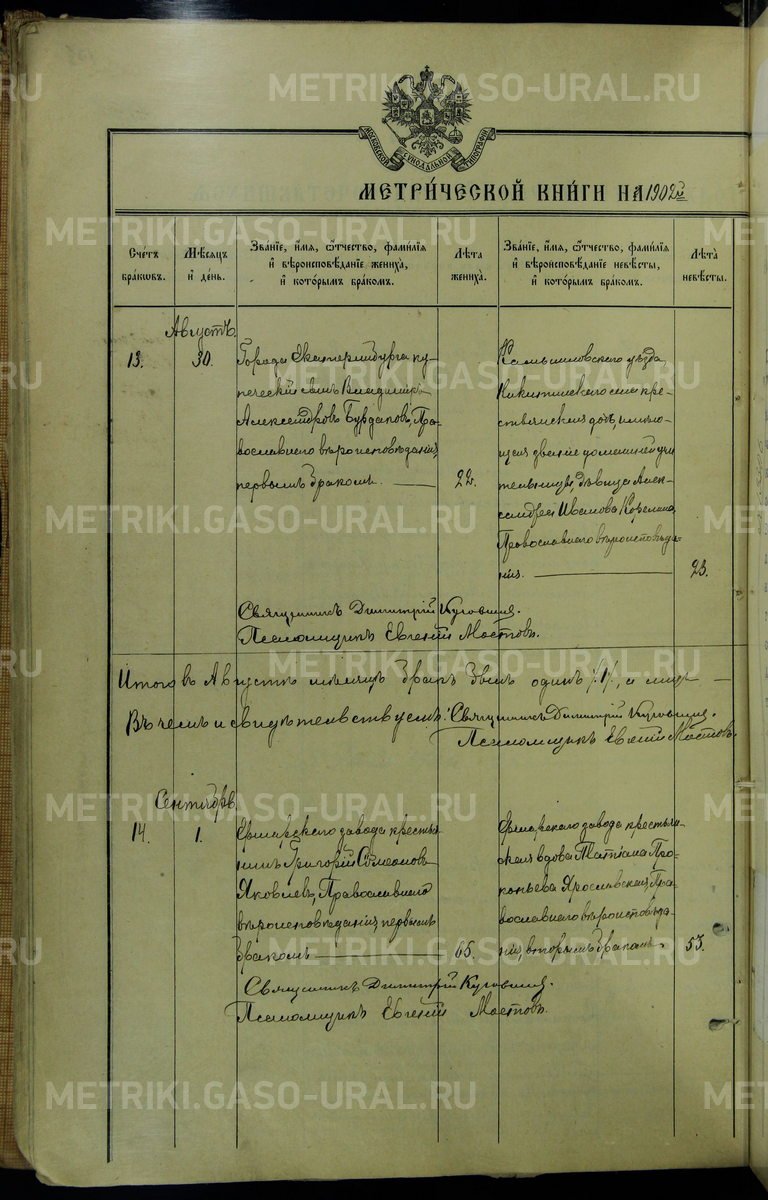 МОСКОВСКОЙ СѴНОДАЛЬНОЙ ТИПОГРАФІИ
МЕТРИ́ЧЕСКОЙ КНИ́ГИ НА 1902 й
Сче́тъ бра́кѡвъ.
Мѣ́сѧцъ и҆ де́нь.
Зва́нїе, и҆́мѧ, ѻ҆́тчество, фами́лїѧ и҆ вѣроисповѣ́данїе жениха̀, и҆ кото́рымъ бра́комъ.
Лѣ́та жениха̀.
Зва́нїе, и҆́мѧ, ѻ҆́тчество, фами́лїѧ и҆ вѣроисповѣ́данїе невѣ́сты, и҆ кото́рымъ бра́комъ.
Лѣ́та невѣ́сты.
Августъ.
13.
30.
Города Екатеринбурга ку-
печескій сынъ Владиміръ
Александровъ Бурдаковъ, Пра-
вославнаго вѣроисповѣданія,
первымъ бракомъ.
22.
Камышловскаго уѣзда,
Никитинскаго села кре-
стьянская дочь, имѣю-
щая званіе домашней учи
тельницы, дѣвица Алек-
сандра Иванова
Православнаго вѣроисповѣда-
нія.
23.
Священникъ Димитрій
Псаломщикъ Евгеній Мостовъ.
Итого въ Августѣ мѣсяцѣ бракъ былъ одинъ /1/, а лицъ
Въ чемъ и свидѣтельствуемъ: Священникъ Димитрій
Псаломщикъ Евгеній Мостовъ.
Сентябрь
14.
1.
завода крестья
нинъ Григорій Симеоновъ
Яковлевъ, Православнаго
вѣроисповѣданія, первымъ
бракомъ
65.
завода крестьян-
ская вдова Татіана Про-
копьева Ярославская, Пра-
вославнаго вѣроисповѣда-
нія, вторымъ бракомъ.
53.
Священникъ Димитрій
Псаломщикъ Евгеній Мостовъ.
METRIKI.GASO-URAL.RU